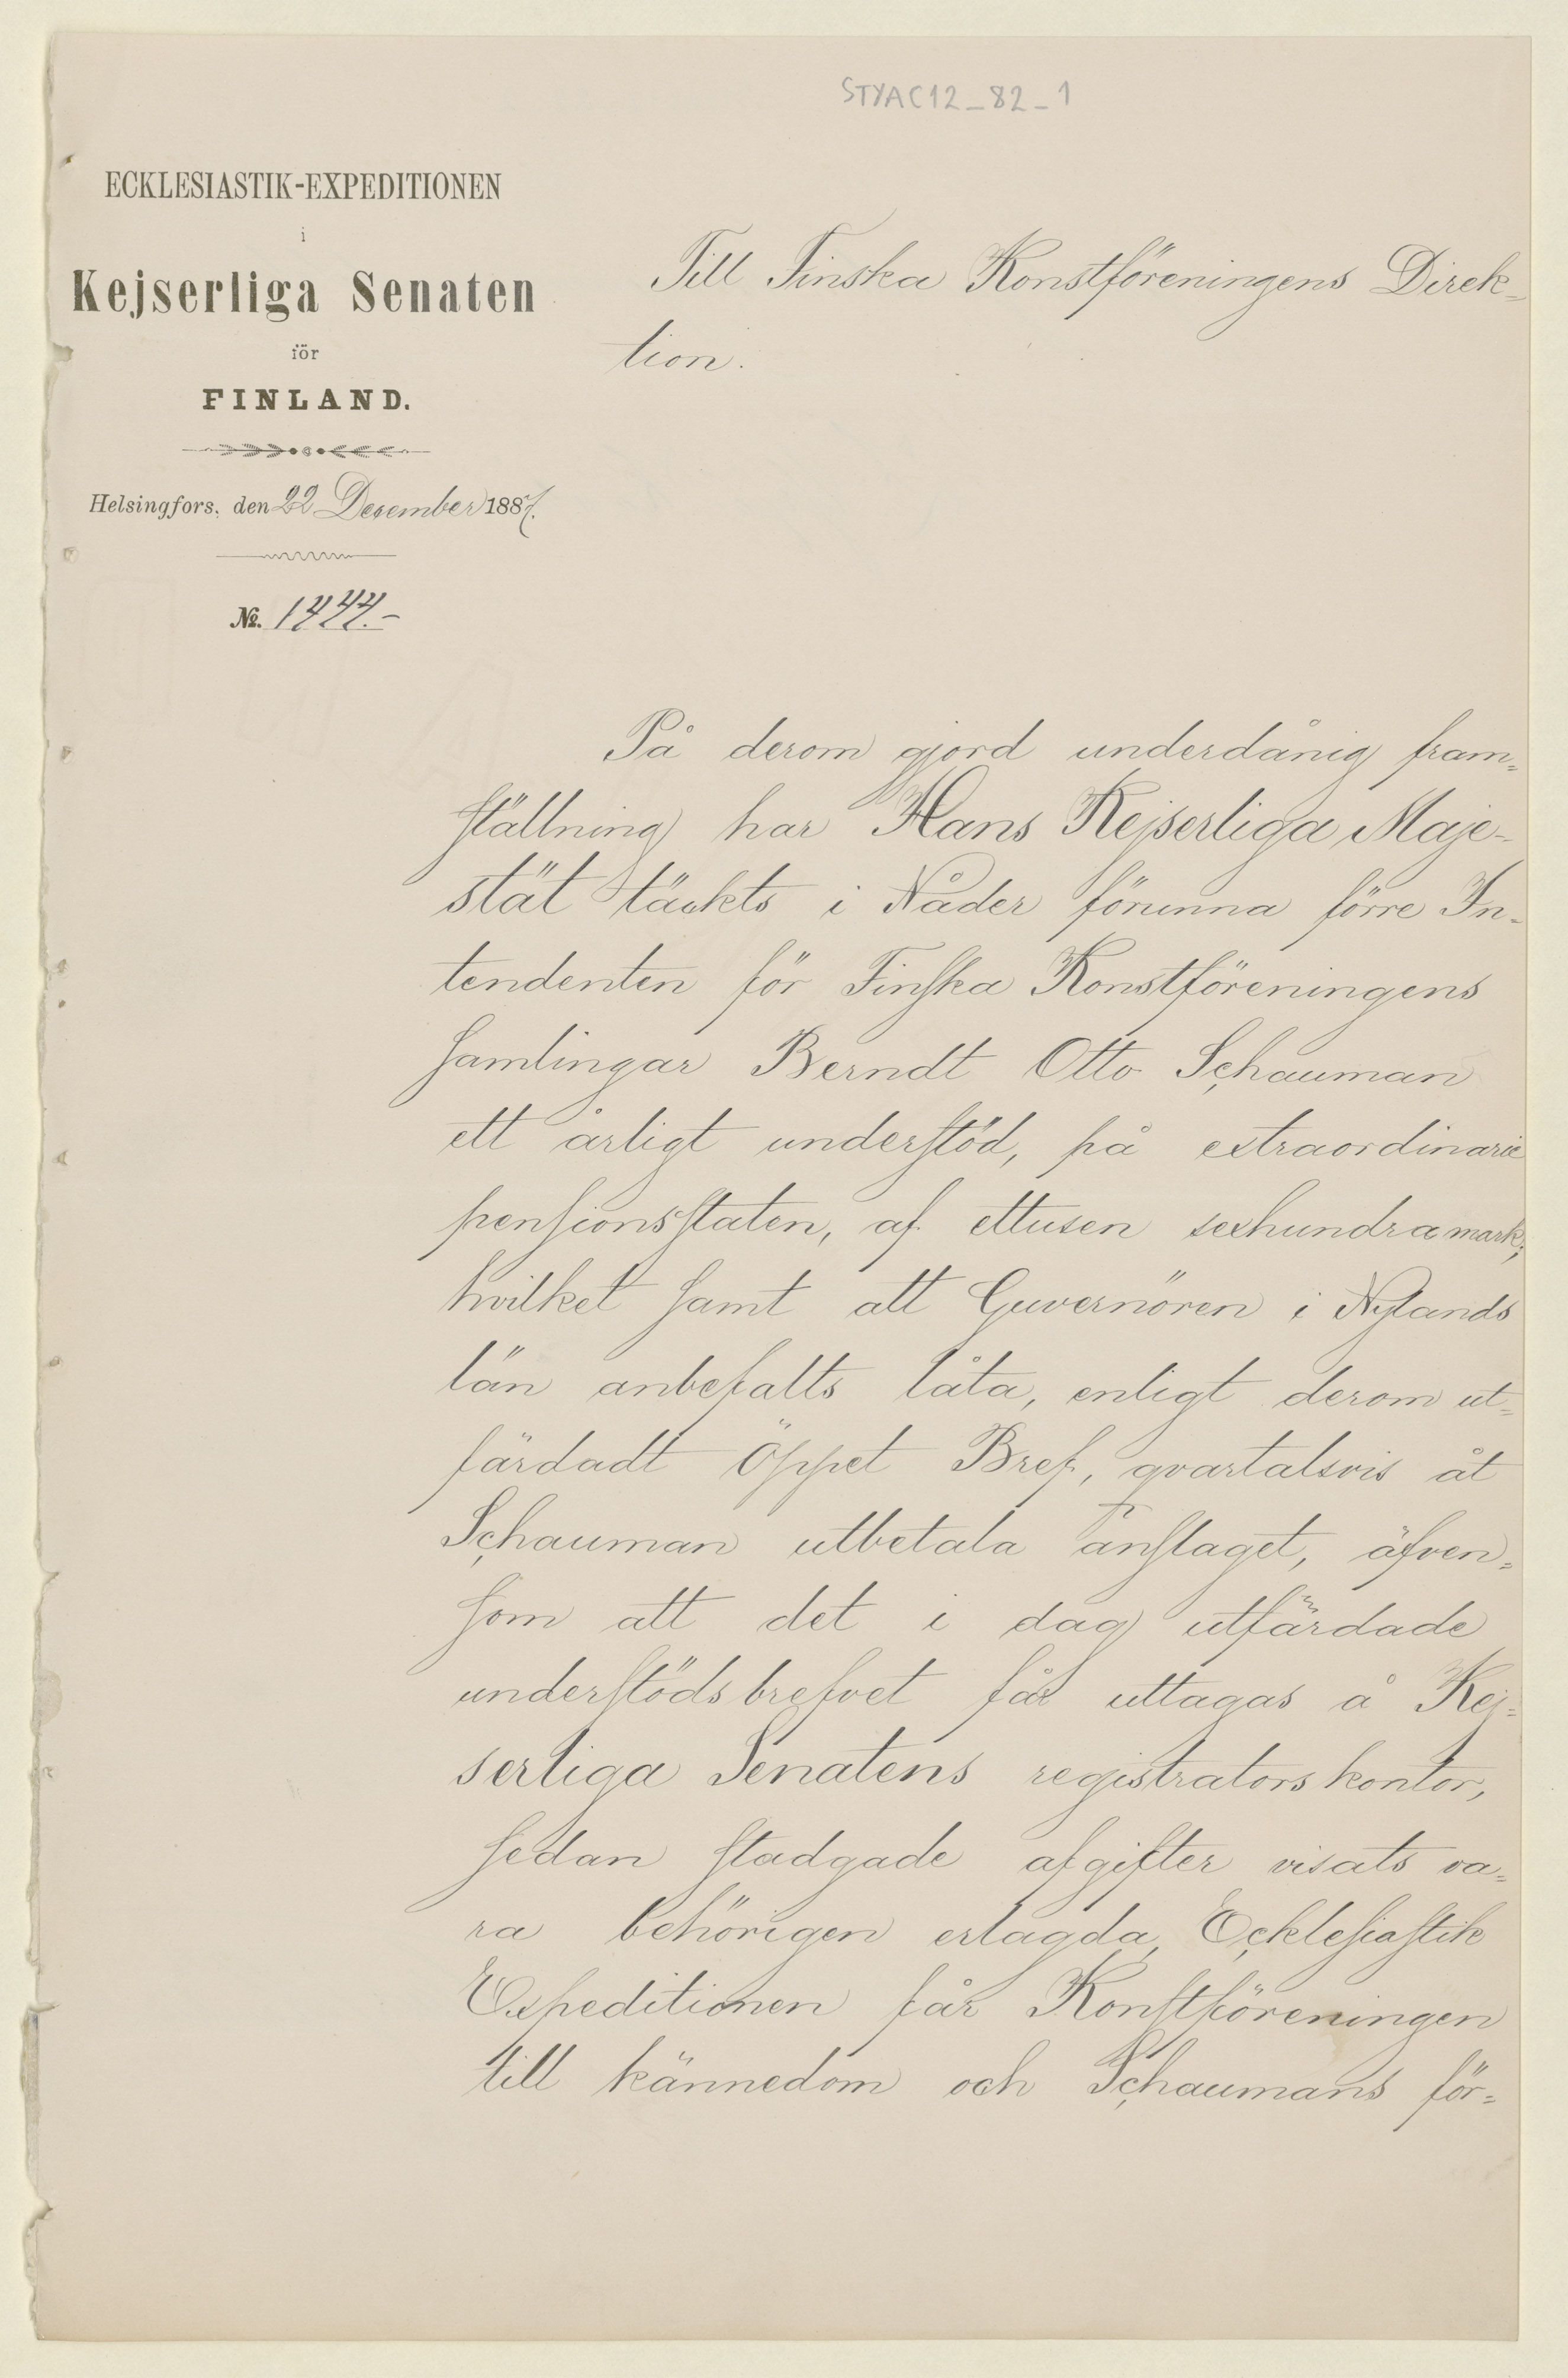 STYAC12_82_1
ECKLESIASTIK-EXPEDITIONEN
i
Kejserliga Senaten
för
FINLAND.
Helsingfors, den 22 December 1887.
№. 1777.-
Till Finska Konstföreningens Direk-
tion.
På derom gjord underdånig fram-
ställning har Hans Kejserliga Maje-
stät täckts i Nåder förunna förre In-
tendenten för Finska Konstföreningens
samlingar Berndt Otto Schauman
ett årligt understöd, på extraordinarie
pensionsstaten, af ettusen sexhundra mark;
hvilket samt att Guvernören i Nylands
län anbefalts låta, enligt derom ut-
färdadt Öppet Bref, qvartalsvis åt
Schauman utbetala anslaget, äfven-
som att det i dag utfärdade
understödsbrefvet får uttagas å Kej-
serliga Senatens registratorskontor,
sedan stadgade afgifter visats va-
ra behörigen erlagda, Ecklesiastik
Expeditionen får Konstföreningen
till kännedom och Schaumans för-